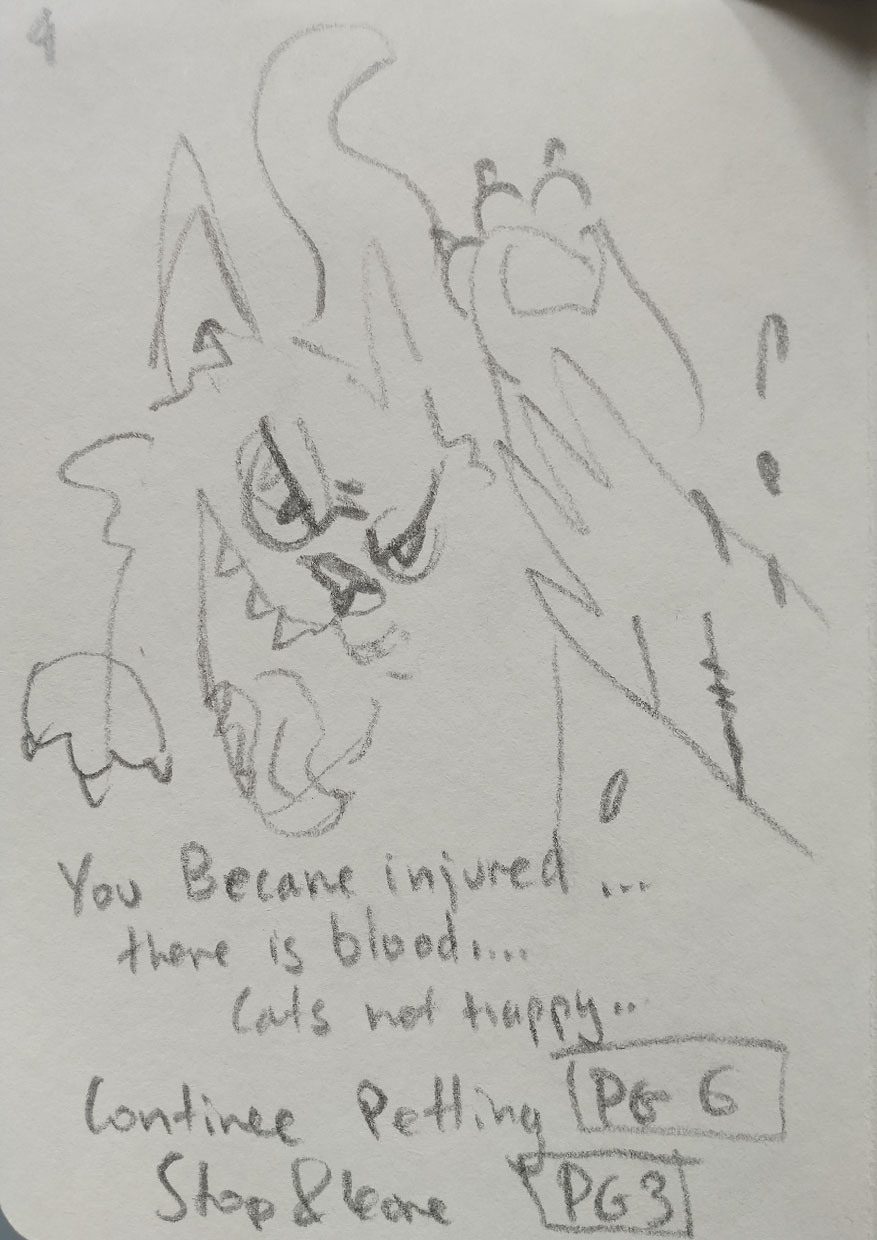 4
You Became injured ...
there is blood....
Cats not happy..
Continee Petting PG 6
Stop & leave PG 3